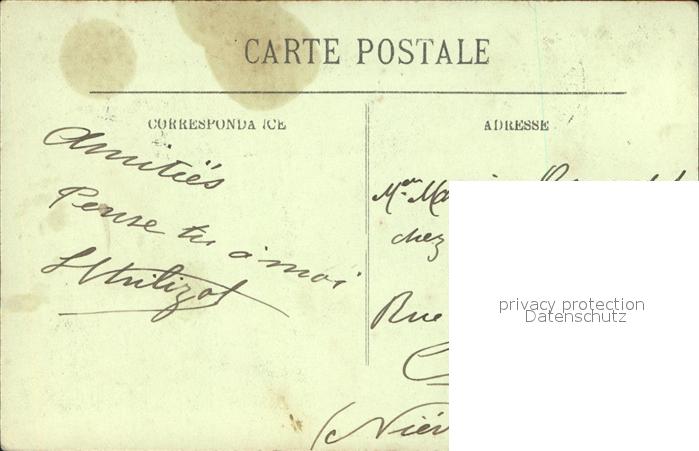 CARTE POSTALE
CORRESPONDANCE
ADRESSE
Amitiés
Pense tu a moi
Mer
chez
Rue
privacy protection
Datenschutz